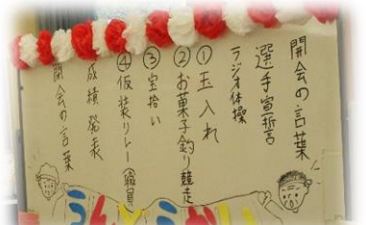 開会の言葉
選手宣誓
ラジオ体操
①玉入れ
②お菓子釣り競走
③宝拾い
④仮装リレー(職員)
成績発表
閉会の言葉
うんどうかい